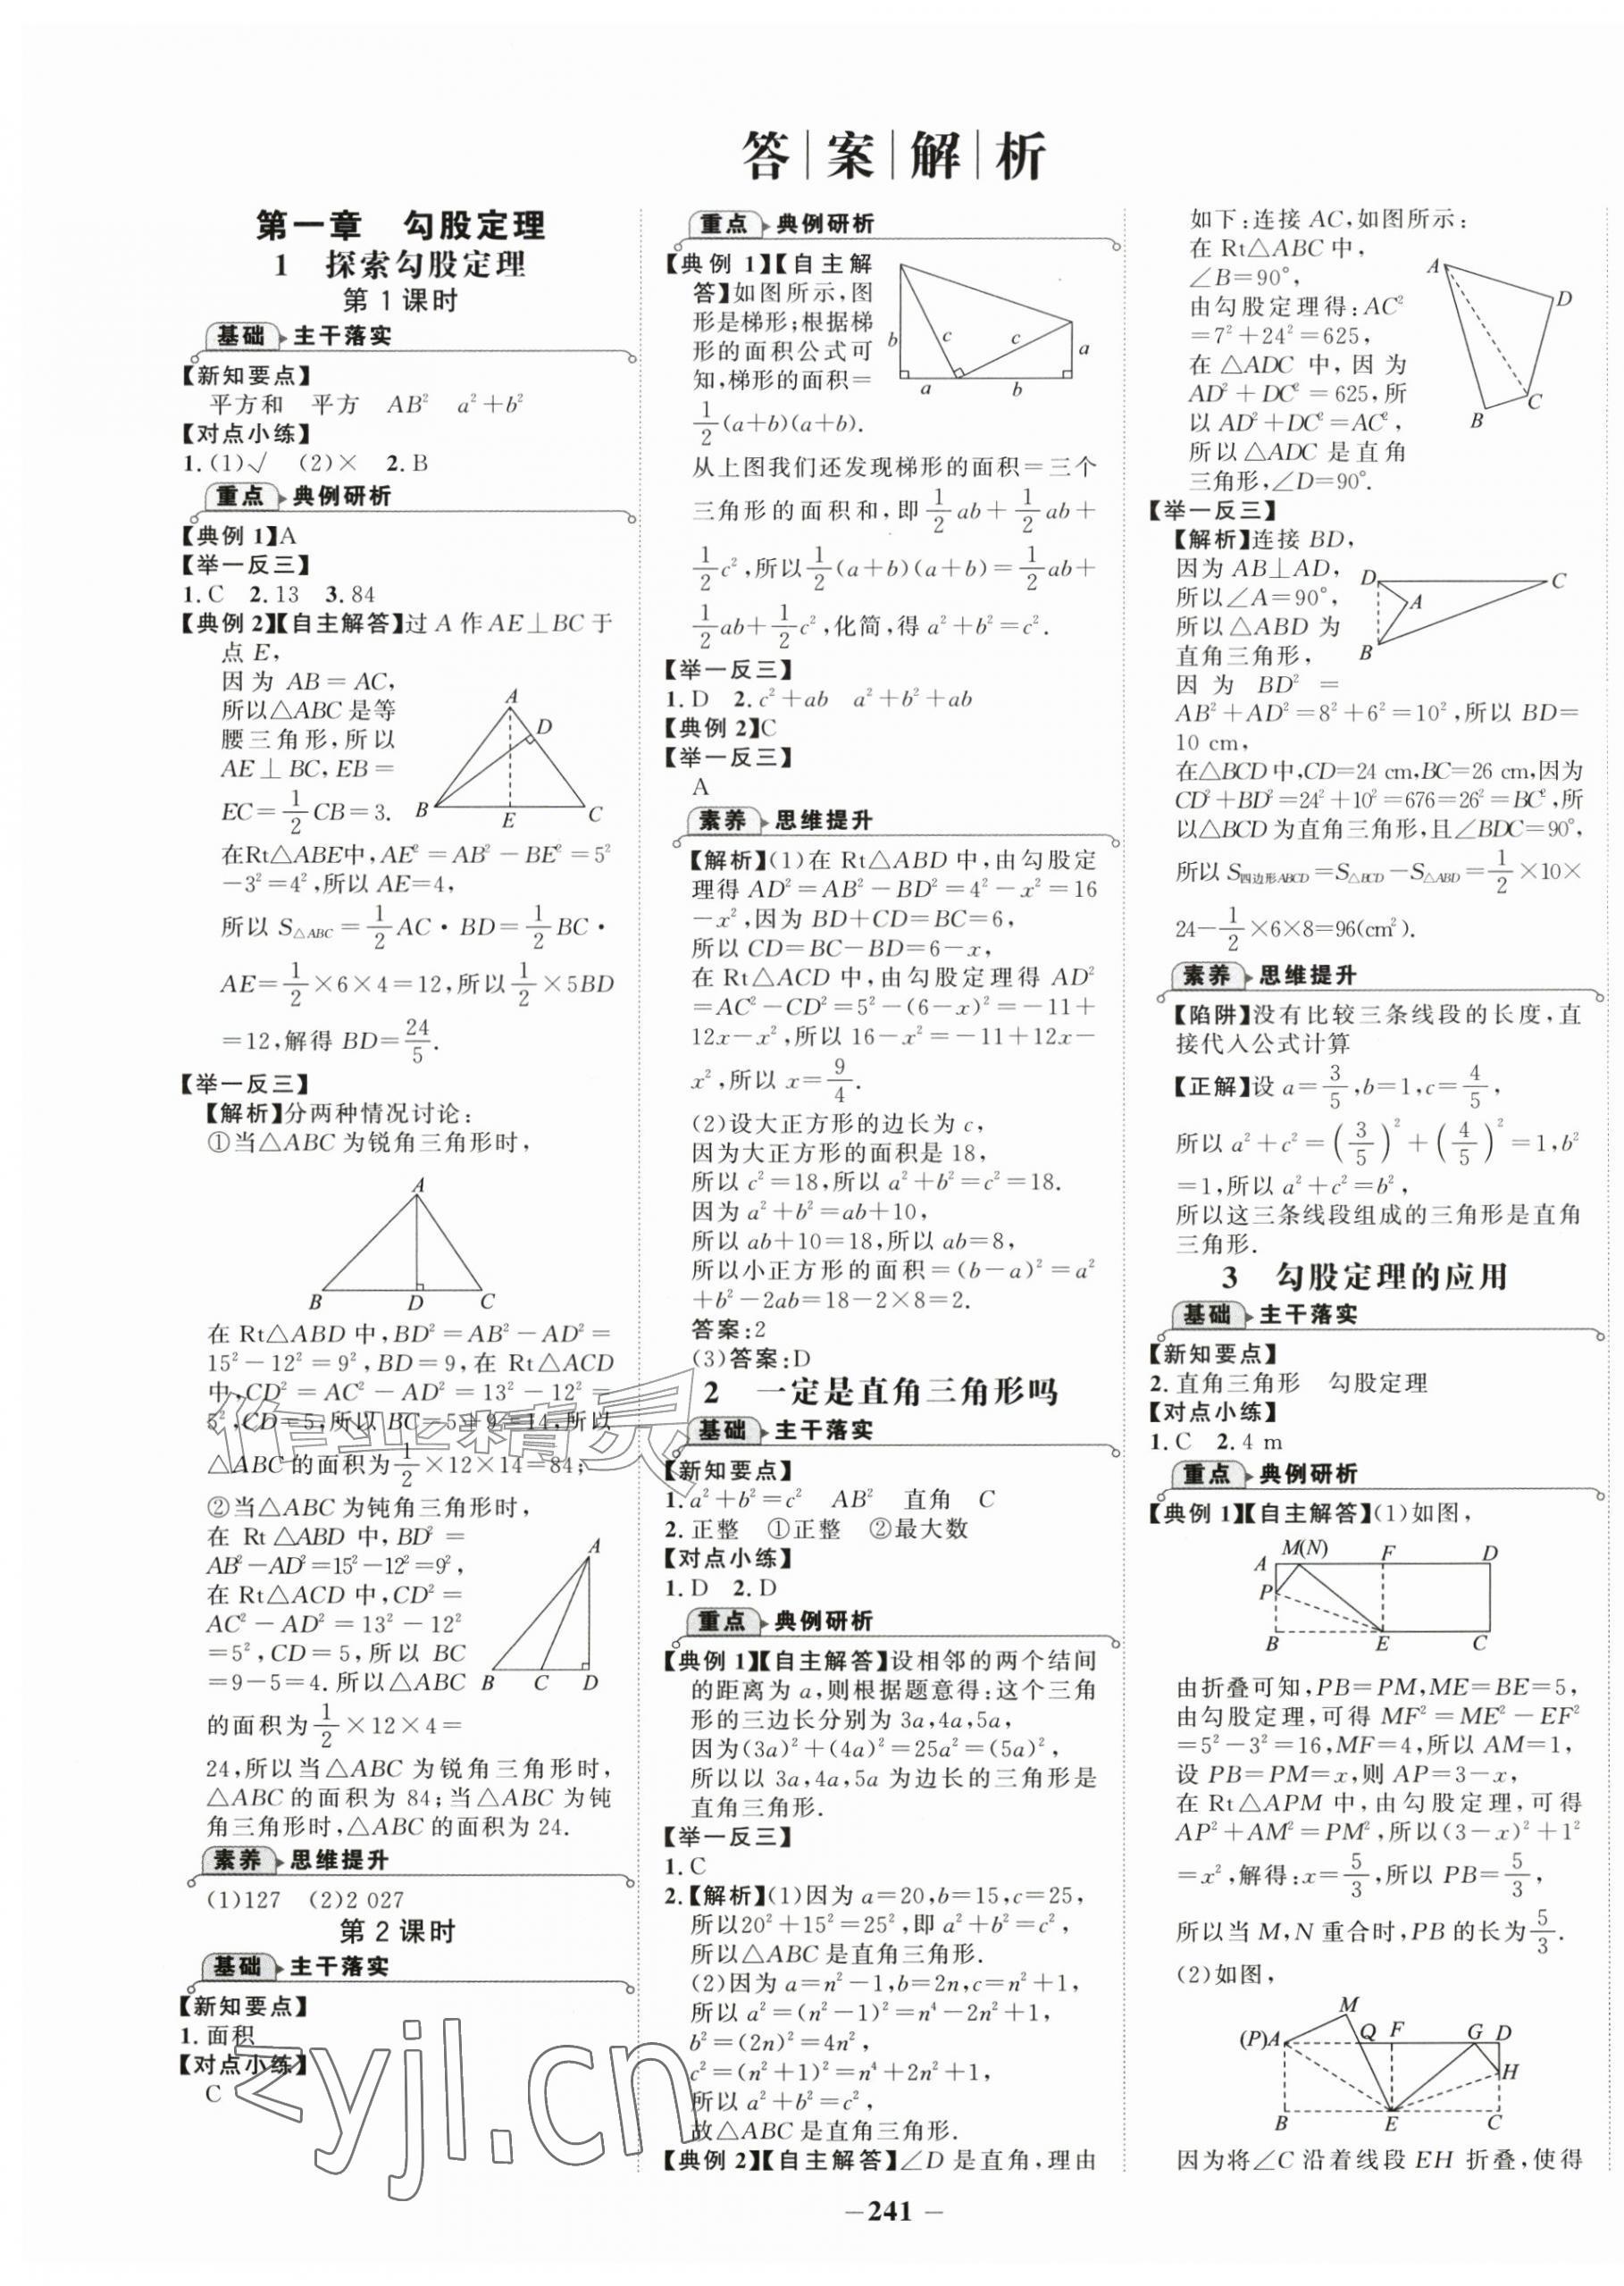 答案解析
第一章 勾股定理
1 探索勾股定理
第 1 课时
基础 主干落实
【新知要点】
平方和 平方 AB² a²+b²
【对点小练】
1.(1)√ (2)× 2.B
重点 典例研析
【典例 1】A
【举一反三】
1.C 2.13 3.84
【典例 2】【自主解答】过 A 作 AE⊥BC 于
点 E,
因为 AB=AC,
所以△ABC 是等
腰三角形,所以
AE⊥BC,EB=
EC=1/2CB=3.
A
D
B
E
C
在Rt△ABE中,AE²=AB²-BE²=5²
-3²=4²,所以 AE=4,
所以 S△ABC=1/2AC·BD=1/2BC·
AE=1/2×6×4=12,所以1/2×5BD
=12,解得 BD=24/5.
【举一反三】
【解析】分两种情况讨论:
①当△ABC 为锐角三角形时,
A
B D C
在 Rt△ABD 中,BD²=AB²-AD²=
15²-12²=9²,BD=9,在 Rt△ACD
中,CD²=AC²-AD²=13²-12²=
5²,CD=5,所以 BC=5+9=14,所以
△ABC 的面积为1/2×12×14=84;
②当△ABC 为钝角三角形时,
在 Rt△ABD 中,BD²=
AB²-AD²=15²-12²=9²,
在 Rt△ACD 中,CD²=
AC²-AD²=13²-12²
=5²,CD=5,所以 BC
=9-5=4.所以△ABC
的面积为1/2×12×4=
A
B C D
24,所以当△ABC 为锐角三角形时,
△ABC 的面积为 84;当△ABC 为钝
角三角形时,△ABC 的面积为 24.
素养 思维提升
(1)127 (2)2 027
第 2 课时
基础 主干落实
【新知要点】
1.面积
【对点小练】
C
重点 典例研析
【典例 1】【自主解
答】如图所示,图
形是梯形;根据梯
形的面积公式可
知,梯形的面积=
1/2(a+b)(a+b).
b c c a
a b
从上图我们还发现梯形的面积=三个
三角形的面积和,即1/2ab+1/2ab+
1/2c²,所以1/2(a+b)(a+b)=1/2ab+
1/2ab+1/2c²,化简,得 a²+b²=c².
【举一反三】
1.D 2.c²+ab a²+b²+ab
【典例 2】C
【举一反三】
A
素养 思维提升
【解析】(1)在 Rt△ABD 中,由勾股定
理得 AD²=AB²-BD²=4²-x²=16
-x²,因为 BD+CD=BC=6,
所以 CD=BC-BD=6-x,
在 Rt△ACD 中,由勾股定理得 AD²
=AC²-CD²=5²-(6-x)²=-11+
12x-x²,所以 16-x²=-11+12x-
x²,所以 x=9/4.
(2)设大正方形的边长为 c,
因为大正方形的面积是 18,
所以 c²=18,所以 a²+b²=c²=18.
因为 a²+b²=ab+10,
所以 ab+10=18,所以 ab=8,
所以小正方形的面积=(b-a)²=a²
+b²-2ab=18-2×8=2.
答案:2
(3)答案:D
2 一定是直角三角形吗
基础 主干落实
【新知要点】
1.a²+b²=c² AB² 直角 C
2.正整 ①正整 ②最大数
【对点小练】
1.D 2.D
重点 典例研析
【典例 1】【自主解答】设相邻的两个结间
的距离为 a,则根据题意得:这个三角
形的三边长分别为 3a,4a,5a,
因为(3a)²+(4a)²=25a²=(5a)²,
所以以 3a,4a,5a 为边长的三角形是
直角三角形.
【举一反三】
1.C
2.【解析】(1)因为 a=20,b=15,c=25,
所以20²+15²=25²,即 a²+b²=c²,
所以△ABC 是直角三角形.
(2)因为 a=n²-1,b=2n,c=n²+1,
所以 a²=(n²-1)²=n⁴-2n²+1,
b²=(2n)²=4n²,
c²=(n²+1)²=n⁴+2n²+1,
所以 a²+b²=c²,
故△ABC 是直角三角形.
【典例 2】【自主解答】∠D 是直角,理由
如下:连接 AC,如图所示:
在 Rt△ABC 中,
∠B=90°,
由勾股定理得:AC²
=7²+24²=625,
在 △ADC 中,因为
AD²+DC²=625,所
以 AD²+DC²=AC²,
所以△ADC 是直角
三角形,∠D=90°.
A
D
B C
【举一反三】
【解析】连接 BD,
因为 AB⊥AD,
所以∠A=90°,
所以△ABD 为
直角三角形,
因为 BD²=
D C
A
B
AB²+AD²=8²+6²=10²,所以 BD=
10 cm,
在△BCD 中,CD=24 cm,BC=26 cm,因为
CD²+BD²=24²+10²=676=26²=BC²,所
以△BCD 为直角三角形,且∠BDC=90°,
所以 S四边形ABCD=S△BCD-S△ABD=1/2×10×
24-1/2×6×8=96(cm²).
素养 思维提升
【陷阱】没有比较三条线段的长度,直
接代入公式计算
【正解】设 a=3/5,b=1,c=4/5,
所以 a²+c²=(3/5)²+(4/5)²=1,b²
=1,所以 a²+c²=b²,
所以这三条线段组成的三角形是直角
三角形.
3 勾股定理的应用
基础 主干落实
【新知要点】
2.直角三角形 勾股定理
【对点小练】
1.C 2.4 m
重点 典例研析
【典例 1】【自主解答】(1)如图,
A M(N) F D
P
B E C
由折叠可知,PB=PM,ME=BE=5,
由勾股定理,可得 MF²=ME²-EF²
=5²-3²=16,MF=4,所以 AM=1,
设 PB=PM=x,则 AP=3-x,
在 Rt△APM 中,由勾股定理,可得
AP²+AM²=PM²,所以(3-x)²+1²
=x²,解得:x=5/3,所以 PB=5/3,
所以当 M,N 重合时,PB 的长为5/3.
(2)如图,
M
(P)A Q F G D
H
B E C
因为将∠C 沿着线段 EH 折叠,使得
作业精灵
zyjl.cn
－241－